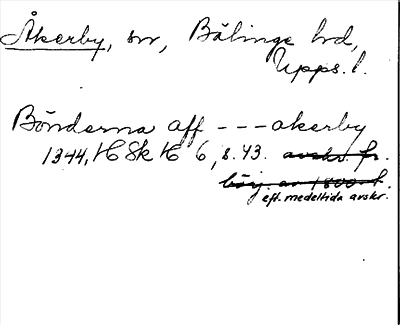 Åkerby, sn, Bälinge hd,
Upps. l.
Bönderna aff --- akerby
1344, HSkH 6, s. 43. avskr. fr.
börj. av 1800-t.
eft. medeltida avskr.